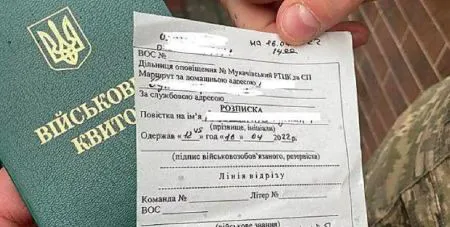 ВІЙСЬКОВ
КВИТО
НА 16.04.22
ВОС №
Дільниця оповіщення № Мукачівський РТЦК та СП
Маршрут за домашньою адресою
За службовою адресою
РОЗПИСКА
Повістка на ім'я
(прізвище, ініціали)
Одержав «12 45 » год «16 » 04 2022 р.
(підпис військовозобов'язаного, резервіста)
Лінія відрізу
Команда № Літер №
ВОС
(військове звання)